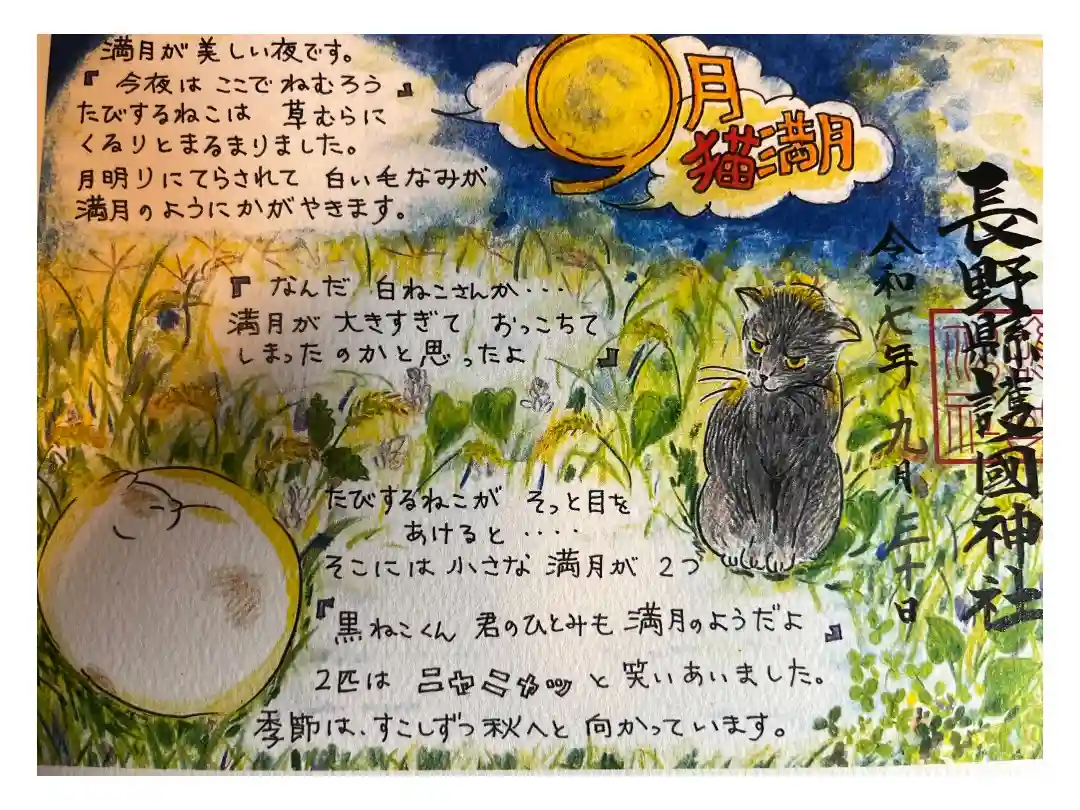 満月が美しい夜です。
『今夜は ここで ねむろう』
たびするねこは 草むらに
くるりとまるまりました。
月明りにてらされて 白い毛なみが
満月のようにかがやきます。
9月
猫満月
『なんだ 白ねこさんか・・・
満月が 大きすぎて おっこちて
しまったのかと思ったよ』
たびするねこが そっと目を
あけると ・・・・
そこには 小さな 満月が 2つ
『黒ねこくん 君のひとみも 満月のようだよ』
2匹は ニャニャッと 笑いあいました。
季節は、すこしずつ秋へと 向かっています。
長野縣護國神社
令和七年九月三十日